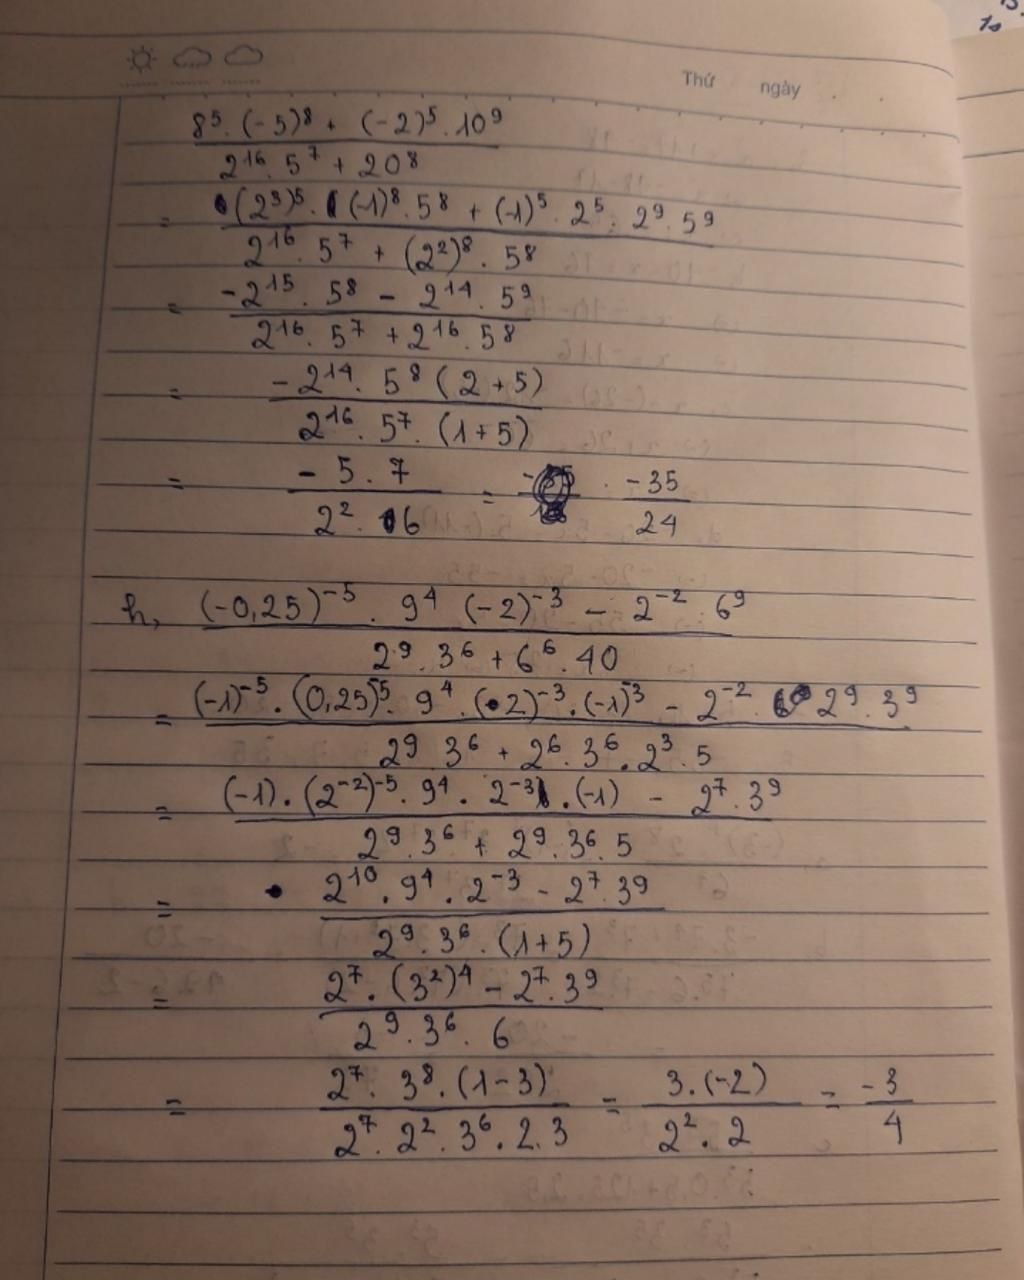 Thứ ngày
8⁵ . (-5)⁸ + (-2)⁵ . 10⁹
2¹⁶ . 5⁷ + 20⁸
= (2³)⁵ . (-1)⁸ . 5⁸ + (-1)⁵ . 2⁵ . 2⁹ . 5⁹
2¹⁶ . 5⁷ + (2²)⁸ . 5⁸
= -2¹⁵ . 5⁸ - 2¹⁴ . 5⁹
2¹⁶ . 5⁷ + 2¹⁶ . 5⁸
= -2¹⁴ . 5⁸ (2 + 5)
2¹⁶ . 5⁷ . (1 + 5)
= -5 . 7 = -35
2² . 6 24
h, (-0,25)⁻⁵ . 9⁴ (-2)⁻³ - 2⁻² . 6⁹
2⁹ . 3⁶ + 6⁶ . 40
= (-1)⁻⁵ . (0,25)⁻⁵ . 9⁴ . (2)⁻³ . (-1)⁻³ - 2⁻² . 2⁹ . 3⁹
2⁹ . 3⁶ + 2⁶ . 3⁶ . 2³ . 5
= (-1) . (2⁻²)⁻⁵ . 9⁴ . 2⁻³ . (-1) - 2⁷ . 3⁹
2⁹ . 3⁶ + 2⁹ . 3⁶ . 5
= 2¹⁰ . 9⁴ . 2⁻³ - 2⁷ . 3⁹
2⁹ . 3⁶ . (1 + 5)
= 2⁷ . (3²)⁴ - 2⁷ . 3⁹
2⁹ . 3⁶ . 6
= 2⁷ . 3⁸ . (1 - 3) = 3 . (-2) = -3
2⁷ . 2² . 3⁶ . 2 . 3 2² . 2 4